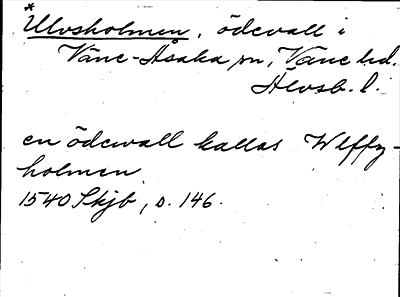 *
Ulvsholmen, ödevall i
Väne-Åsaka sn, Väne hd.
Älvsb. l.
en ödewall kallas Wlffz-
holmen
1540 Skjb, s. 146.